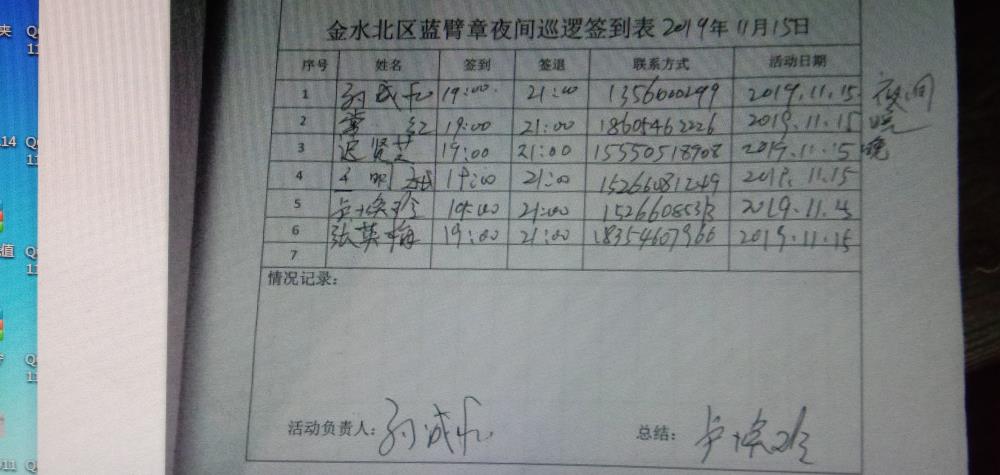 金水北区蓝臂章夜间巡逻签到表 2019年11月15日
序号 姓名 签到 签退 联系方式 活动日期
1 19:00 21:00 2019.11.15 夜间
2 19:00 21:00 18605462226 2019.11.15 晚
3 迟贤芝 19:00 21:00 15550518908 2019.11.15 晚
4 19:00 21:00 15266081249 2019.11.15
5 卢焕珍 19:00 21:00 2019.11.15
6 张英梅 19:00 21:00 18354607966 2019.11.15
7
情况记录:
活动负责人:
总结: 卢焕珍